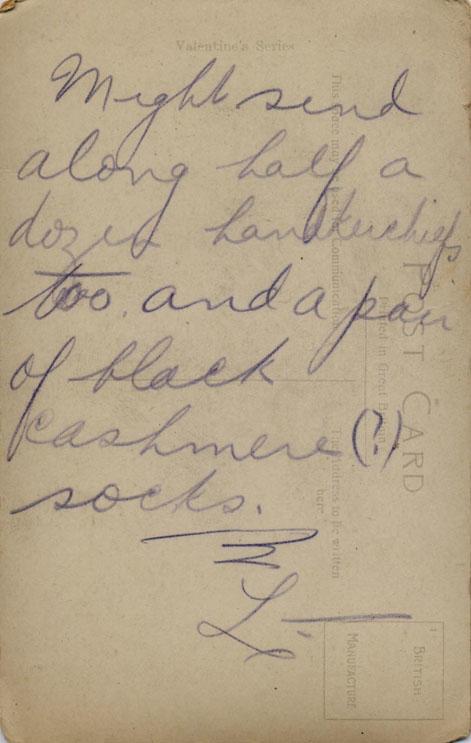 Valentine's Series
Might send
along half a
dozen handkerchiefs
too and a pair
of black
cashmere (?)
socks.
L.
This space may be used for Communication
POST CARD
Printed in Great Britain
The Address to be written
here
BRITISH
MANUFACTURE